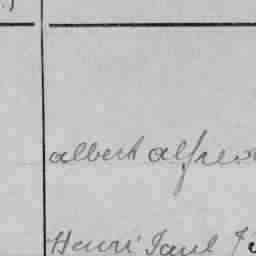 albert alfred
Henri Paul